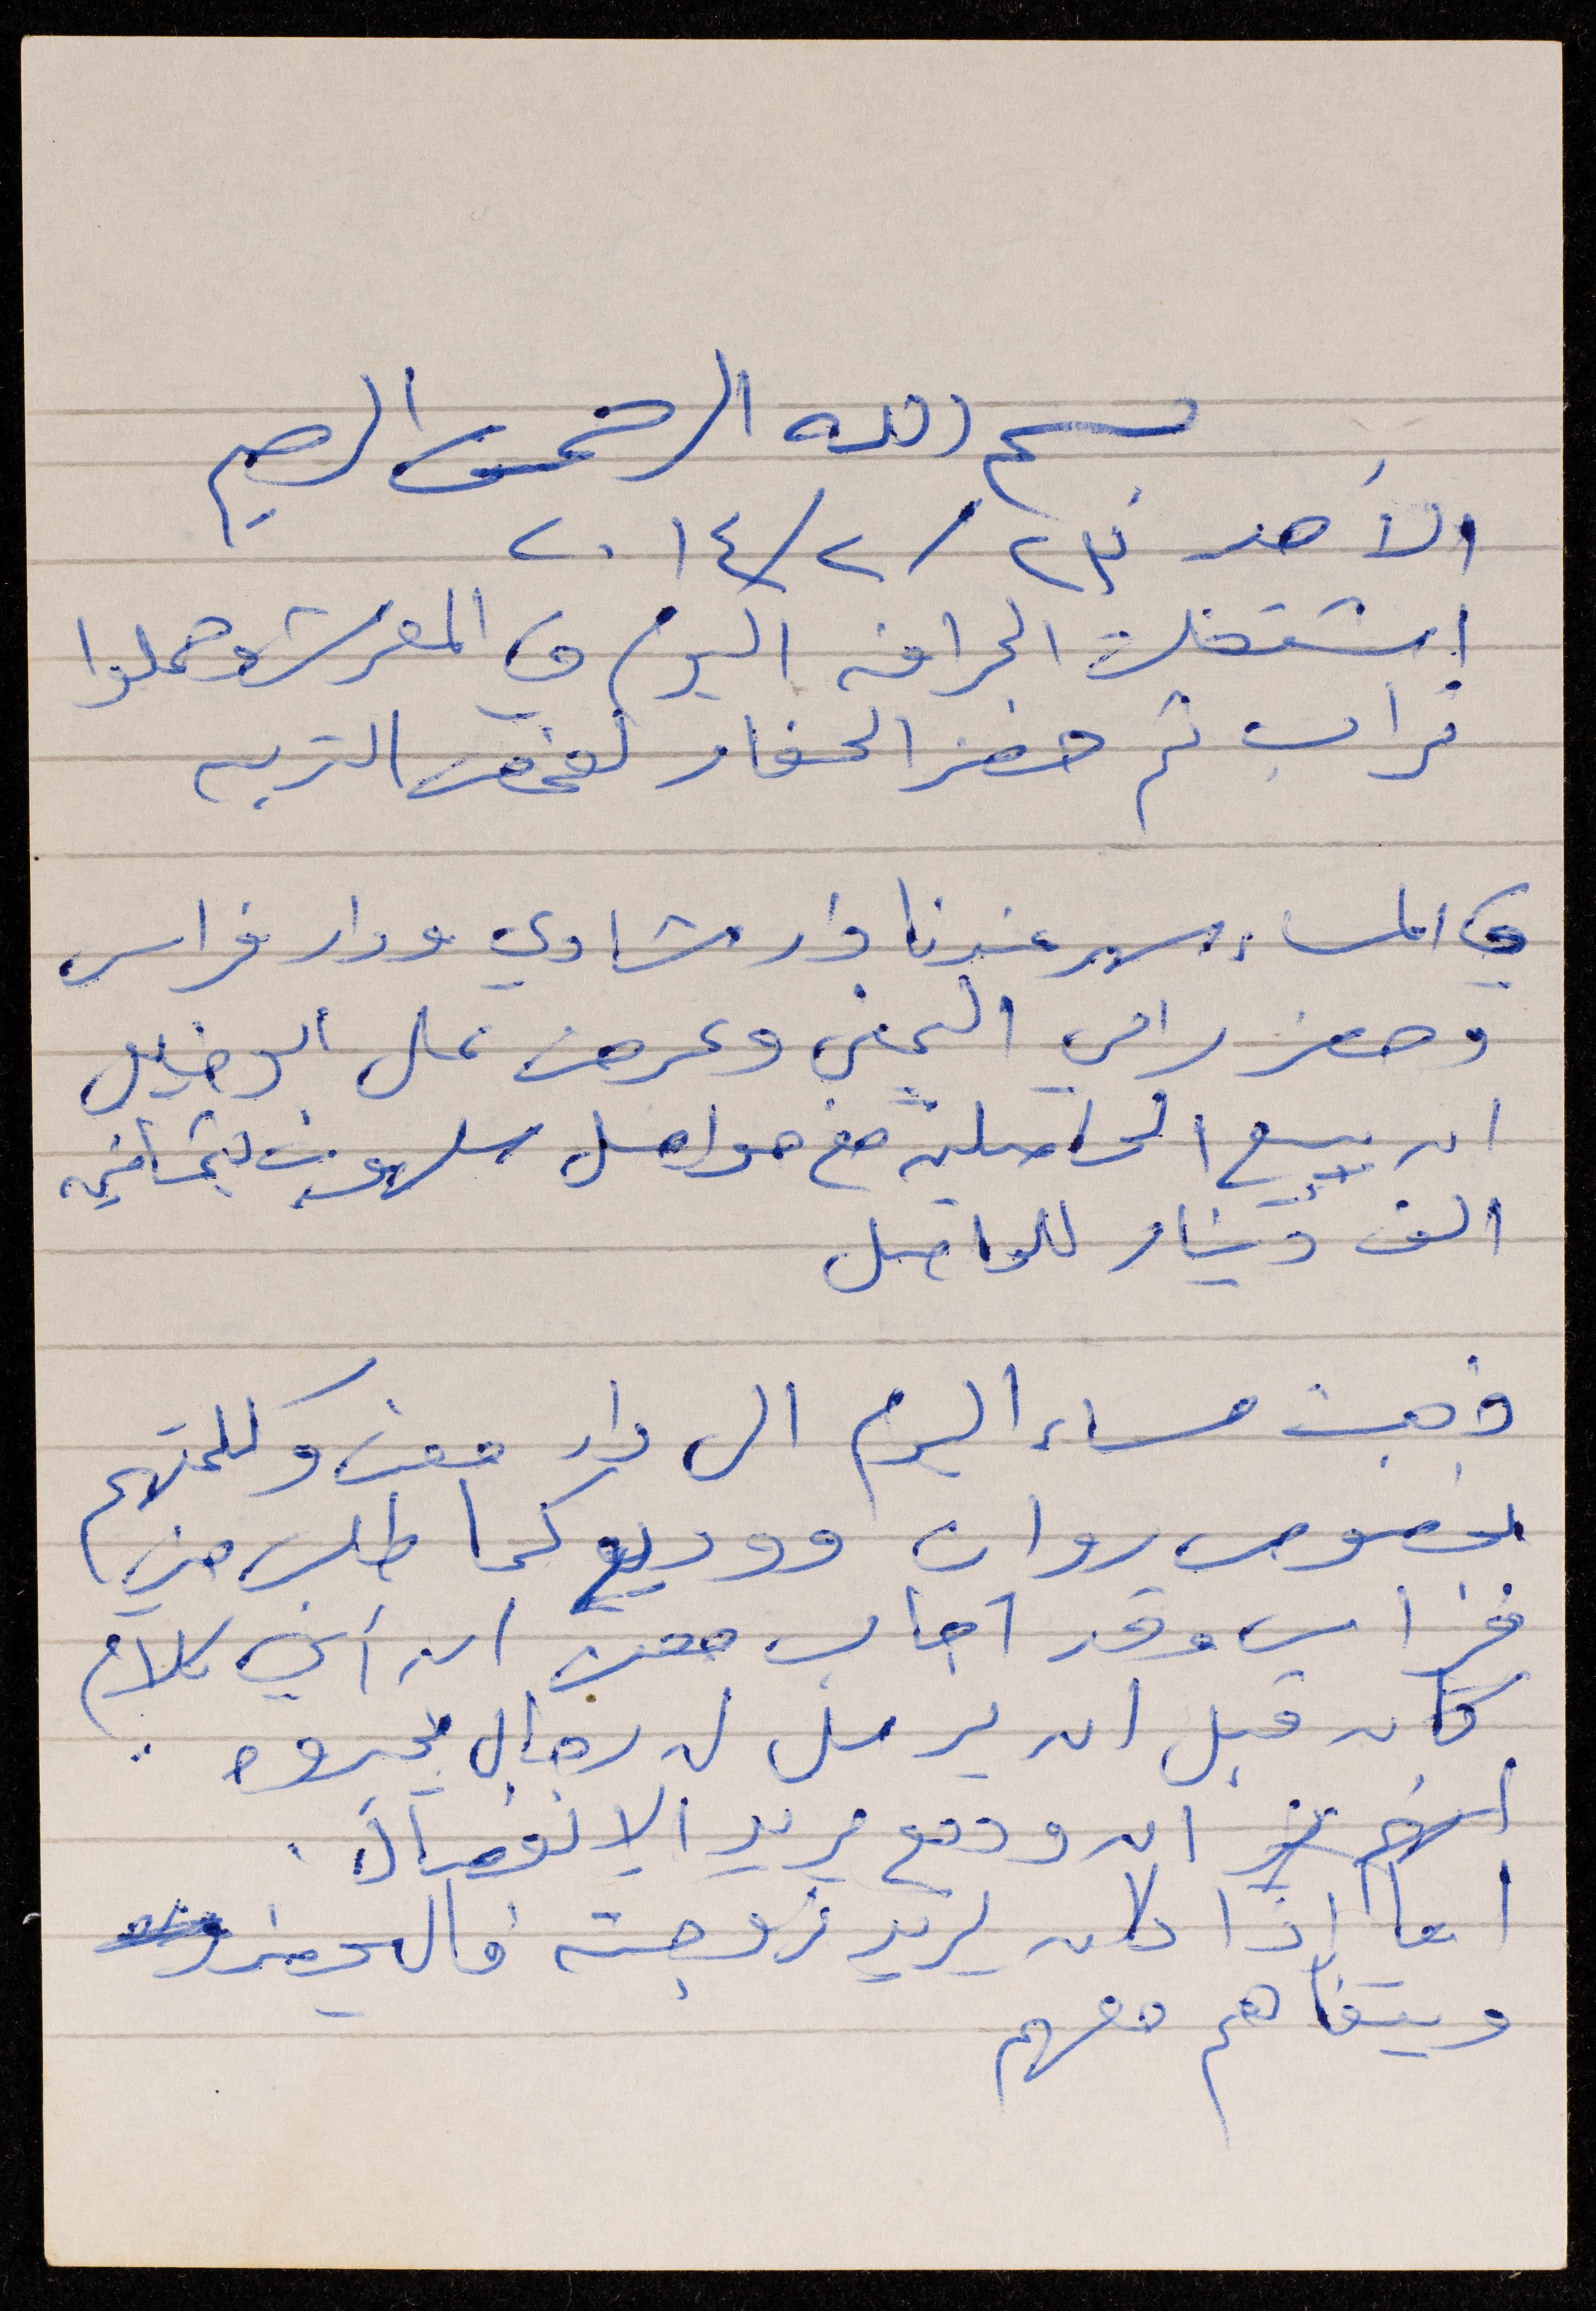 بسم الله الرحمن الرحيم
الأحد ٢٣/٢/٢٠١٤
اشتغلت الجرافه اليوم في المعرش وحملوا
تراب ثم حضر الحفار لفحص التربه
في المساء سهر عندنا دار شادي ودار فراس
وحضر رامي اليمني وعرض على ابو خليل
ان يبيع الحاصلين مع حواصل سلهوب بثمانيه
الف دينار للحاصل
ذهبت مساء اليوم الى دار معن وكلمتهم
بخصوص روان ووديع كما طلب مني
فراس وقد اجاب معن ان أي كلام
كان قبل ان يرسل له رجال يخبروه
ان وديع يريد الإنفصال.
اما اذا كان يريد زوجته فال يحضر
ويتفاهم معهم